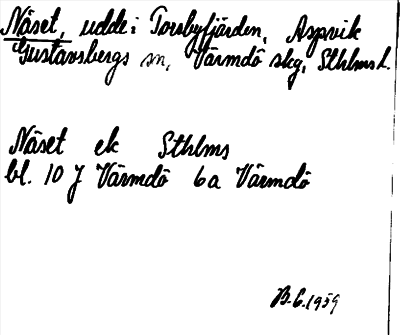 Näset, udde i Torsbyfjärden, Aspvik
Gustavsbergs sn, Värmdö skg, Sthlms l.
Näset ek Sthlms
bl. 10 J Värmdö 6a Värmdö
B.C. 1959